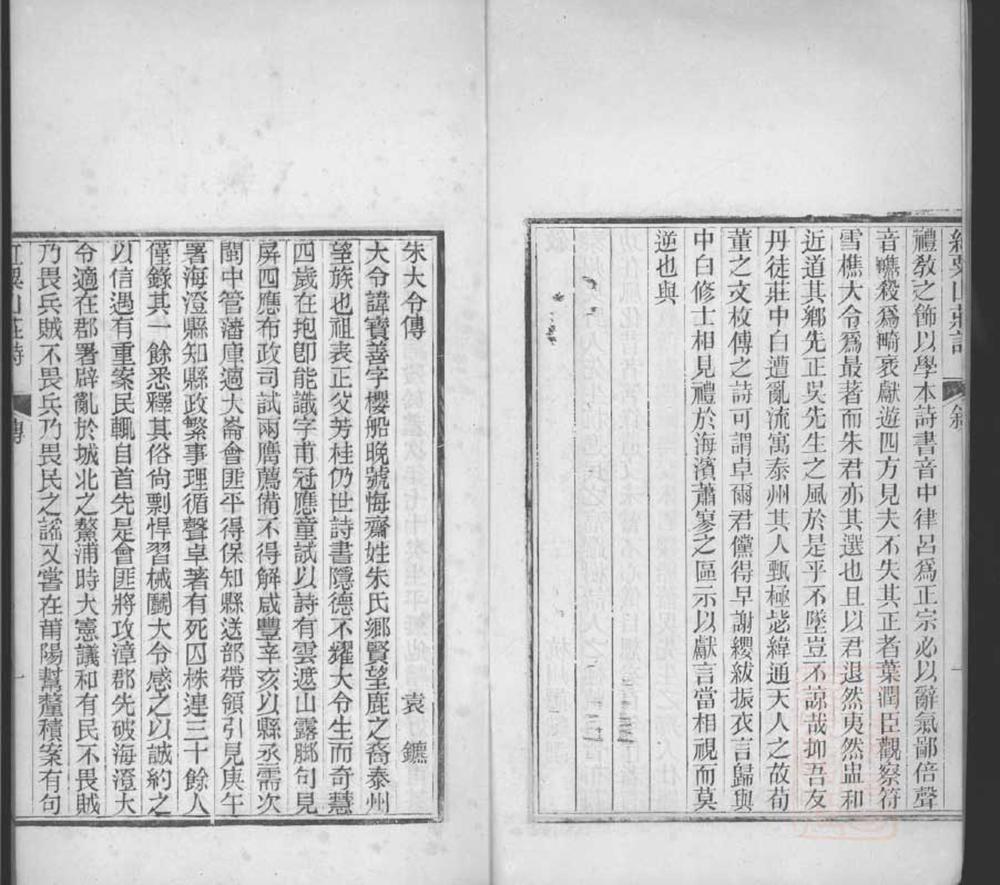 禮教之飾以學本詩書音中律呂爲正宗必以辭氣鄙倍聲
音噍殺爲畸衺獻遊四方見夫不失其正者葉潤臣觀察符
雪樵大令爲最著而朱君亦其選也且以君退然夷然盅和
近道其鄉先正吳先生之風於是乎不墜豈不諒哉抑吾友
丹徒莊中白遭亂流寓泰州其人甄極毖緯通天人之故荀
董之文枚傅之詩可謂卓爾君儻得早謝纓紱振衣言歸與
中白修士相見禮於海濱蕭寥之區示以獻言當相視而莫
逆也與
朱大令傳 袁鑣
大令諱寶善字櫻船晚號悔齋姓朱氏鄉賢望鹿之裔泰州
望族也祖表正父芳桂仍世詩書隱德不耀大令生而奇慧
四歲在抱卽能識字甫冠應童試以詩有雲遮山露腳句見
屏四應布政司試兩膺薦備不得解咸豐辛亥以縣丞需次
閩中管藩庫適大崙會匪平得保知縣送部帶領引見庚午
署海澄縣知縣政繁事理循聲卓著有死囚株連三十餘人
僅錄其一餘悉釋其俗尙剽悍習械鬬大令感之以誠約之
以信遇有重案民輒自首先是會匪將攻漳郡先破海澄大
令適在郡署辟亂於城北之鰲浦時大憲議和有民不畏賊
乃畏兵賊不畏兵乃畏民之謠又嘗在莆陽幫釐積案有句
傳
一